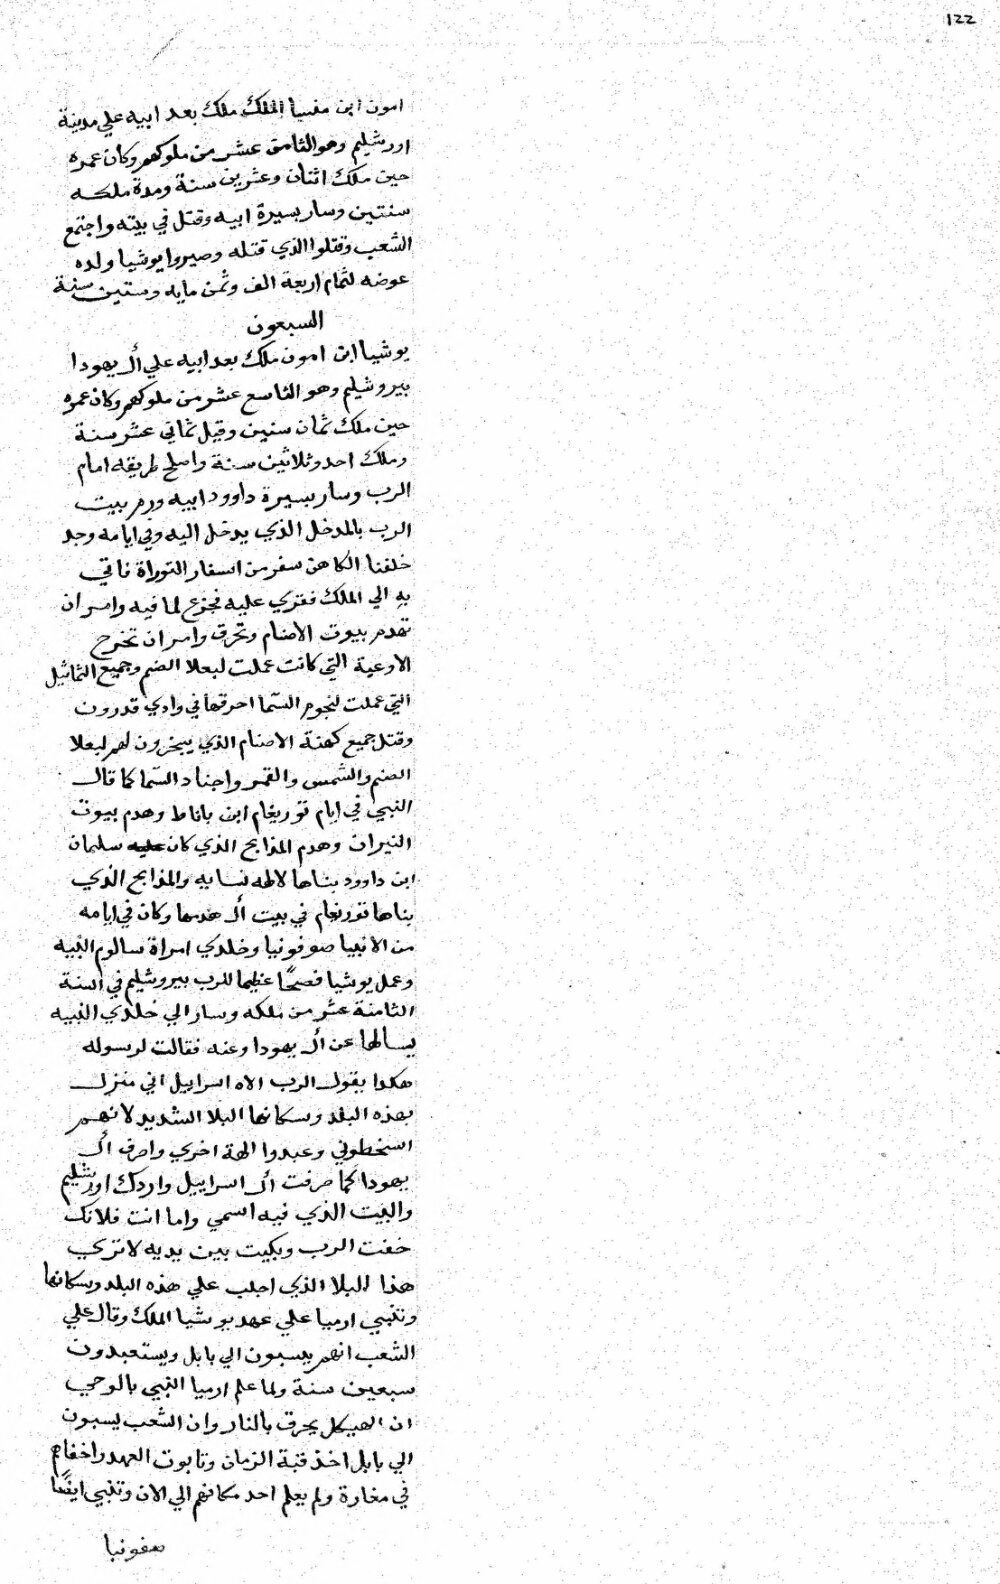 ١٢٢
امون ابن منسا الملك ملك بعد ابيه علي مدينة
اورشليم وهو الثامن عشر من ملوكهم وكان عمره
حين ملك اثنان وعشرين سنة ومدة ملكه
سنتين وسار بسيرة ابيه وقتل في بيته واجتمع
الشعب وقتلوا الذي قتله وصيروا يوشيا ولده
عوضه لتمام اربعة الف وثمن مايه وستين سنة
السبعون
يوشيا ابن امون ملك بعد ابيه علي أل يهودا
بيروشليم وهو التاسع عشر من ملوكهم وكان عمره
حين ملك ثمان سنين وقيل ثماني عشر سنة
وملك احد وثلاثين سنة واصلح طريقه امام
الرب وسار بسيرة داوود ابيه ورم بيت
الرب بالمدخل الذي يدخل اليه وفي ايامه وجد
خلفنا الكاهن سفر من اسفار التوراة فاتي
به الي الملك فقري عليه فجزع لما فيه وامر ان
تهدم بيوت الاصنام وتحرق وامر ان تخرج
الاوعية التي كانت عملت لبعلا الصنم وجميع التماثيل
التي عملت لنجوم السما احرقها في وادي قدرون
وقتل جميع كهنة الاصنام الذي يبخرون لهم لبعلا
الصنم والشمس والقمر واجناد السما كما قال
النبي في ايام توربعام ابن باناط وهدم بيوت
النيران وهدم المذابح الذي كان سليمان
ابن داوود بناها لالهة نسايه والمذابح الذي
بناها توربعام في بيت أل هدمها وكان في ايامه
من الانبيا صوفونيا وخلدي امراة سالوم النبيه
وعمل يوشيا فصحًا عظيما للرب بيروشليم في السنة
الثامنة عشر من ملكه وسار الي خلدي النبيه
يسالها عن أل يهودا وعنه فقالت لرسوله
هكدا يقول الرب الاه اسراييل اني منزل
بهذه البلد وسكانها البلا الشديد لانهم
اسخطوني وعبدوا الهة اخري واصرف أل
يهودا كما صرفت أل اسراييل واردك اورشليم
والبيت الذي فيه اسمي واما انت فلانك
خفت الرب وبكيت بين يديه لا تري
هذا البلا الذي اجلب علي هذه البلد وسكانها
وتنبي ارميا علي عهد يوشيا الملك وقال علي
الشعب انهم يسبون الي بابل ويستعبدون
سبعين سنة ولما علم ارميا النبي بالوحي
ان الهيكل يحرق بالنار وان الشعب ليسبون
الي بابل اخذ قبة الزمان وتابوت العهد واخفاهم
في مغارة ولم يعلم احد مكانهم الي الان وتنبي ايضًا
صفونيا